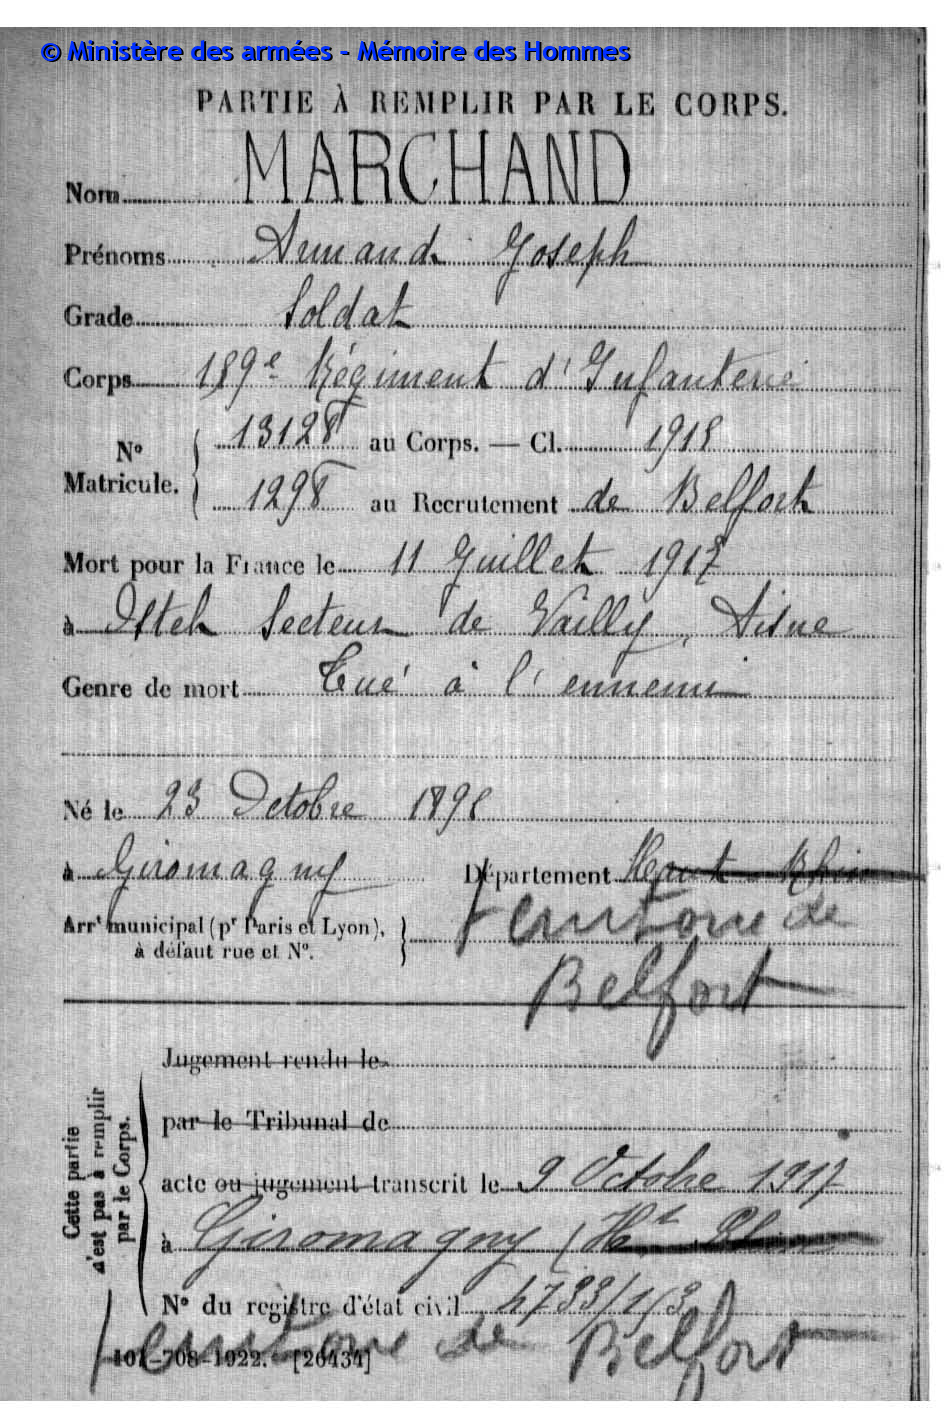 © Ministère des armées - Mémoire des Hommes
PARTIE À REMPLIR PAR LE CORPS.
Nom MARCHAND
Prénoms Armand Joseph
Grade Soldat
Corps 189e Régiment d'Infanterie
No Matricule. { 13128 au Corps. — Cl. 1918
1298 au Recrutement de Belfort
Mort pour la France le 11 Juillet 1917
à Ostel Secteur de Vailly, Aisne
Genre de mort Tué à l'ennemi
Né le 23 Octobre 1898
à Giromagny Département Haut Rhin
Arrt municipal (pr Paris et Lyon), à défaut rue et No. } territoire de
Belfort
Cette partie n'est pas à remplir par le Corps.
Jugement rendu le
par le Tribunal de
acte ou jugement transcrit le 9 Octobre 1917
à Giromagny (Ht Rhin
No du registre d'état civil 4733/1/3
territoire de Belfort
101-708-1922. [26434]